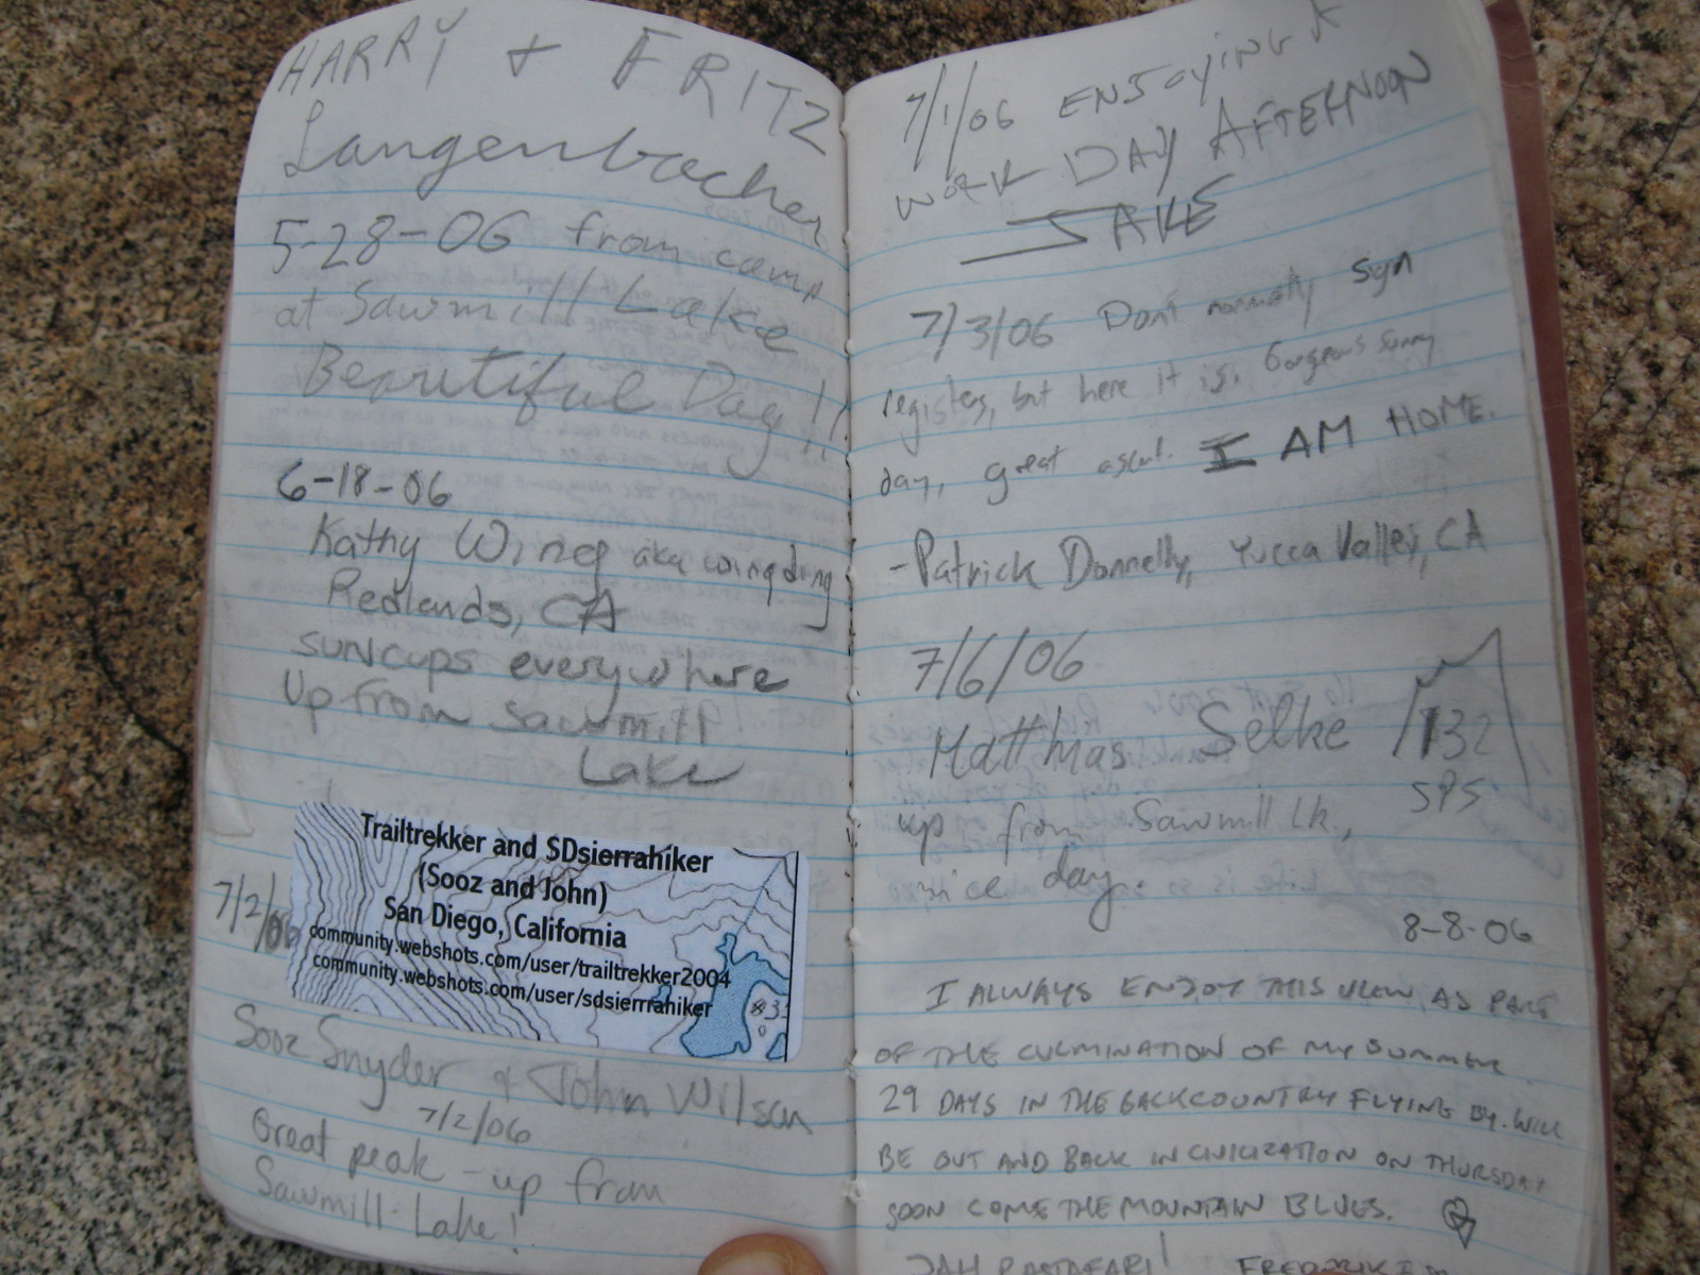 HARRY + FRITZ
Langenbacher
5-28-06 from camp
at Sawmill Lake
Beautiful Day!!
6-18-06
Kathy Wing aka wingding
Redlands, CA
suncups everywhere
Up from Sawmill
Lake
Trailtrekker and SDsierrahiker
(Sooz and John)
San Diego, California
community.webshots.com/user/trailtrekker2004
community.webshots.com/user/sdsierrrahiker
7/2/06
Sooz Snyder & John Wilson
7/2/06
Great peak - up from
Sawmill Lake!
7/1/06 ENJOYING A
WORK DAY AFTERNOON
JAKE
7/3/06 Don't normally sign
registers, but here it is. Gorgeous sunny
day, great ascent. I AM HOME.
-Patrick Donnelly, Yucca Valley, CA
7/6/06
Matthias Selke 132
SPS
up from Sawmill Lk.,
nice day.
8-8-06
I ALWAYS ENJOY THIS VIEW, AS PART
OF THE CULMINATION OF MY SUMMER.
29 DAYS IN THE BACKCOUNTRY FLYING BY. WILL
BE OUT AND BACK IN CIVILIZATION ON THURSDAY
SOON COME THE MOUNTAIN BLUES.
JAH RASTAFARI!